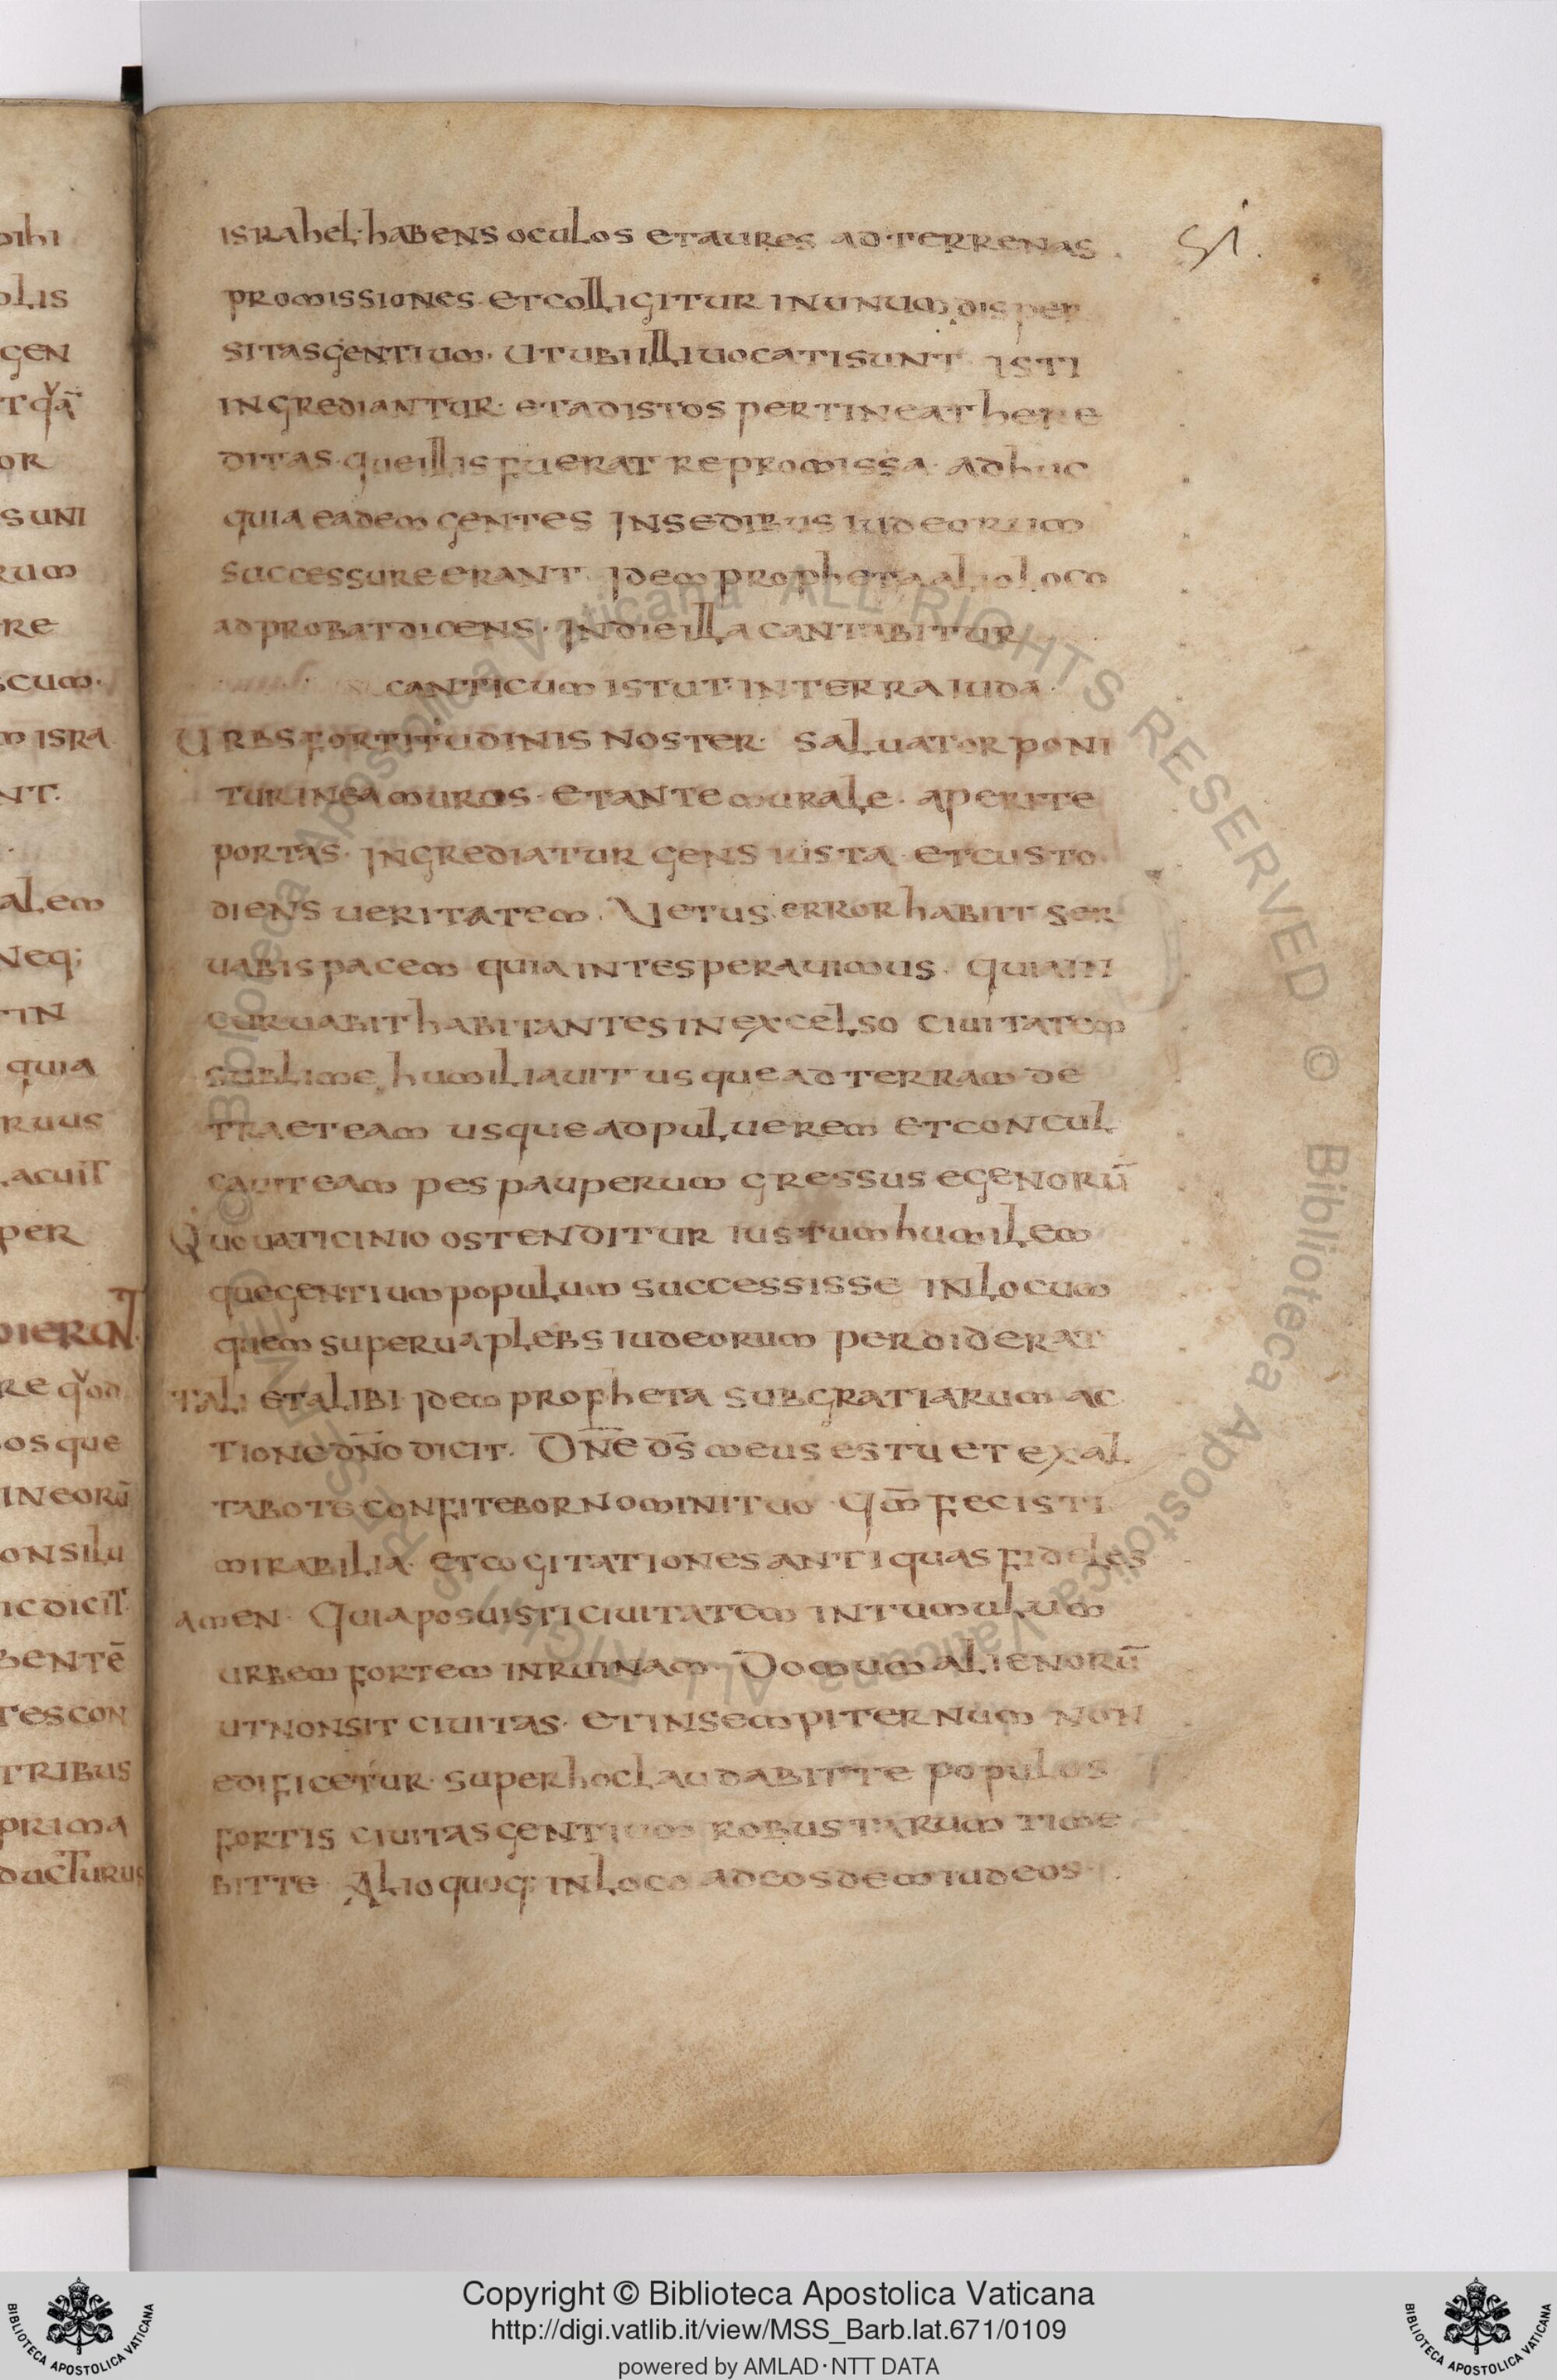 51.
israhel· habens oculos et aures ad terrenas
promissiones· et colligitur in unum disper
sitas gentium· ut ubi illi uocati sunt isti
ingrediantur· et ad istos pertineat here
ditas· que illis fuerat repromissa· adhuc
quia eadem gentes in sedibus iudeorum
successure erant Idem propheta alio loco
adprobat dicens· In die illa cantabitur
canticum istut· in terra iuda·
Urbs fortitudinis noster· saluator poni
tur in ea muros· et antemurale· aperite
portas· ingrediatur gens iusta· et custo
diens ueritatem· Uetus error habiit ser
uabis pacem quia in te sperauimus· quia in
curuabit habitantes in excelso ciuitatem
sublime humiliauit usque ad terram de
traet eam usque ad puluerem et concul
cauit eam pes pauperum gressus egenorū
Quo uaticinio ostenditur iustum humilem
que gentium populum successisse in locum
quem superua plebs iudeorum perdiderat
Tali et alibi· idem propheta sub gratiarum ac
tione dn̄o dicit· Dn̄e ds̄ meus es tu et exal
tabo te confitebor nomini tuo· qm̄ fecisti
mirabilia· et cogitationes antiquas fideles
amen· Quia posuisti ciuitatem in tumulum
urbem fortem in ruinam· Domum alienorū
ut non sit ciuitas· et in sempiternum non
edificetur· super hoc laudabit te populos
fortis ciuitas gentium robustarum time
bit te Alio quoq; in loco ad eosdem iudeos·
isra
alem
Neq;
quia
ruus
per
os que
in eorū
ic dicit
tes con
tribus
prima
ducturus
Copyright © Biblioteca Apostolica Vaticana
http://digi.vatlib.it/view/MSS_Barb.lat.671/0109
powered by AMLAD·NTT DATA
BIBLIOTECA APOSTOLICA VATICANA
BIBLIOTECA APOSTOLICA VATICANA
© Biblioteca Apostolica Vaticana ALL RIGHTS RESERVED © Biblioteca Apostolica Vaticana ALL RIGHTS RESERVED